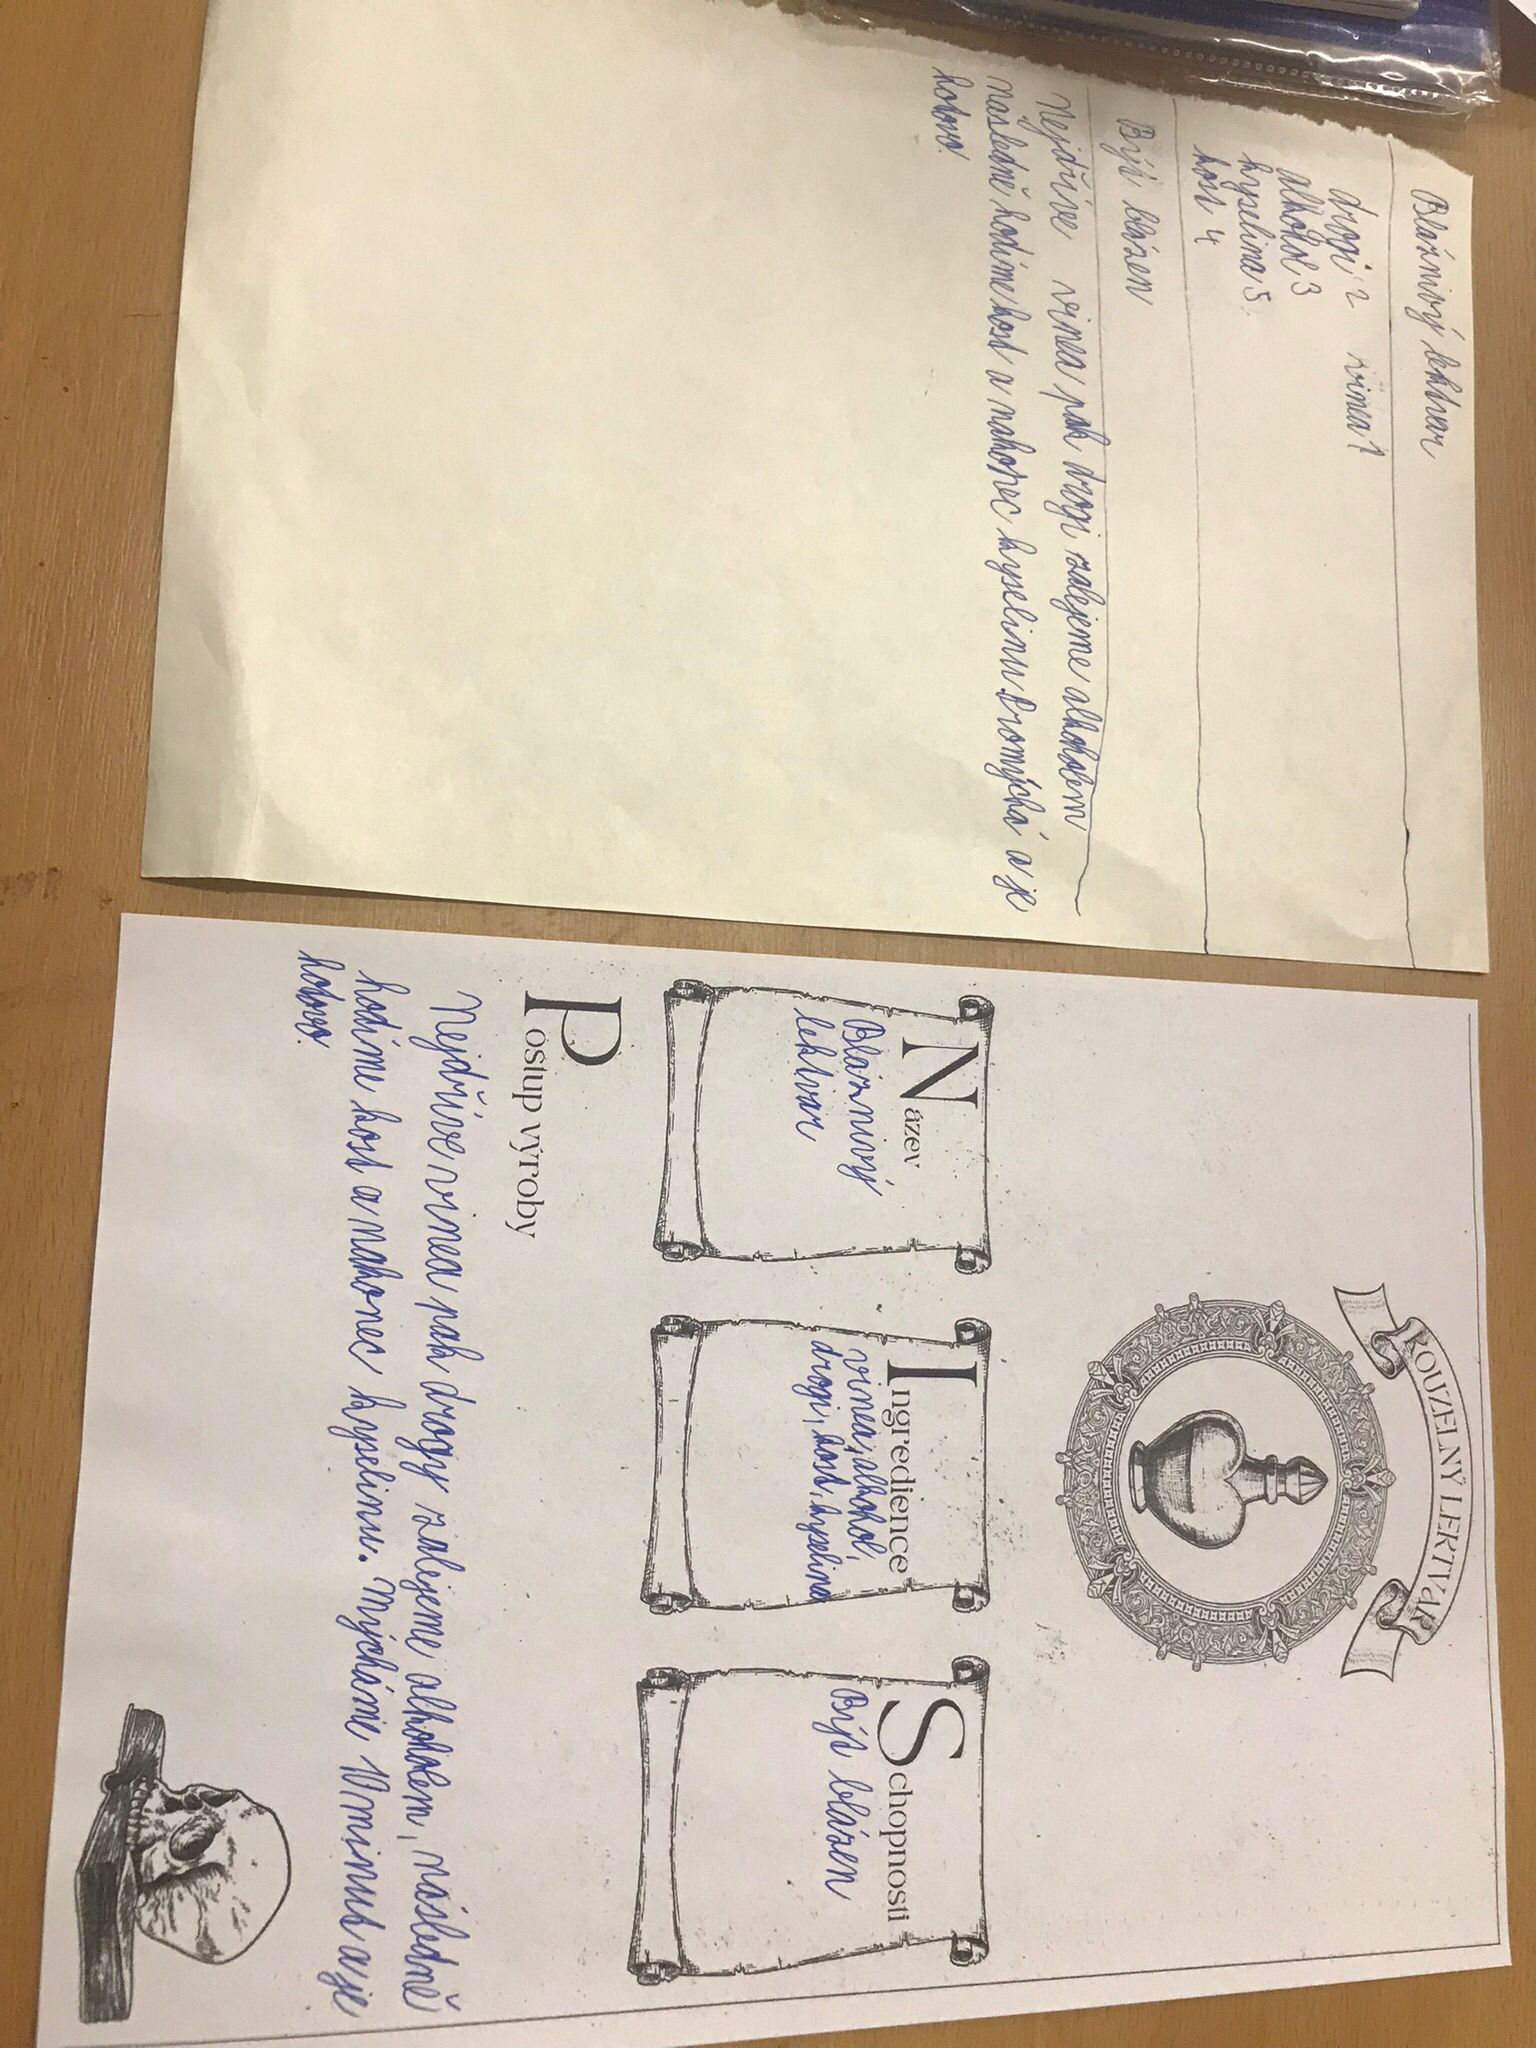 Bláznivý lektvar
drogi 2 vinea 1
alkohol 3
kyselina 5
kost 4
Být blázen
Nejdříve vinea pak drogi zalejeme alkoholem
následně hodíme kost a nakonec kyselinu a je
hotovo.
KOUZELNÝ LEKTVAR
Název
Bláznivý
lektvar
Ingredience
vinea, alkohol,
drogi, kost, kyselina
Schopnosti
Být blázen
Postup výroby
Nejdříve vinea pak drogy zalejeme alkoholem, následně
hodíme kost a nakonec kyselinu. Mýcháme 10 minut a je
hotovo.